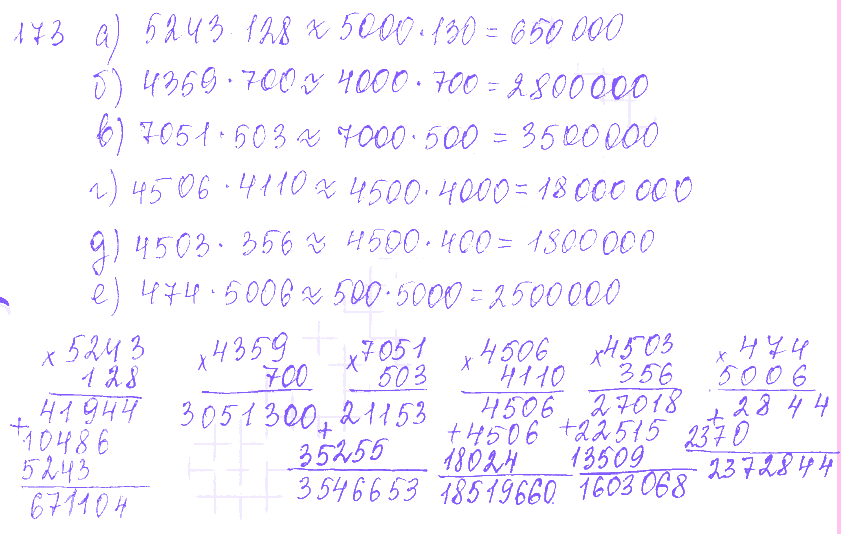 173 а) 5243 128 ≈ 5000·130 = 650 000
б) 4359·700 ≈ 4000·700 = 2800000
в) 7051·503 ≈ 7000·500 = 3500000
г) 4506·4110 ≈ 4500·4000 = 18 000 000
д) 4503·356 ≈ 4500·400 = 1800000
е) 474·5006 ≈ 500·5000 = 2500000
× 5243
128
+ 41944
10486
5243
671104
× 4359
700
3051300
× 7051
503
+ 21153
35255
3546653
× 4506
4110
4506
+ 4506
18024
18519660
× 4503
356
27018
+ 22515
13509
1603068
× 474
5006
+ 2844
2370
2372844